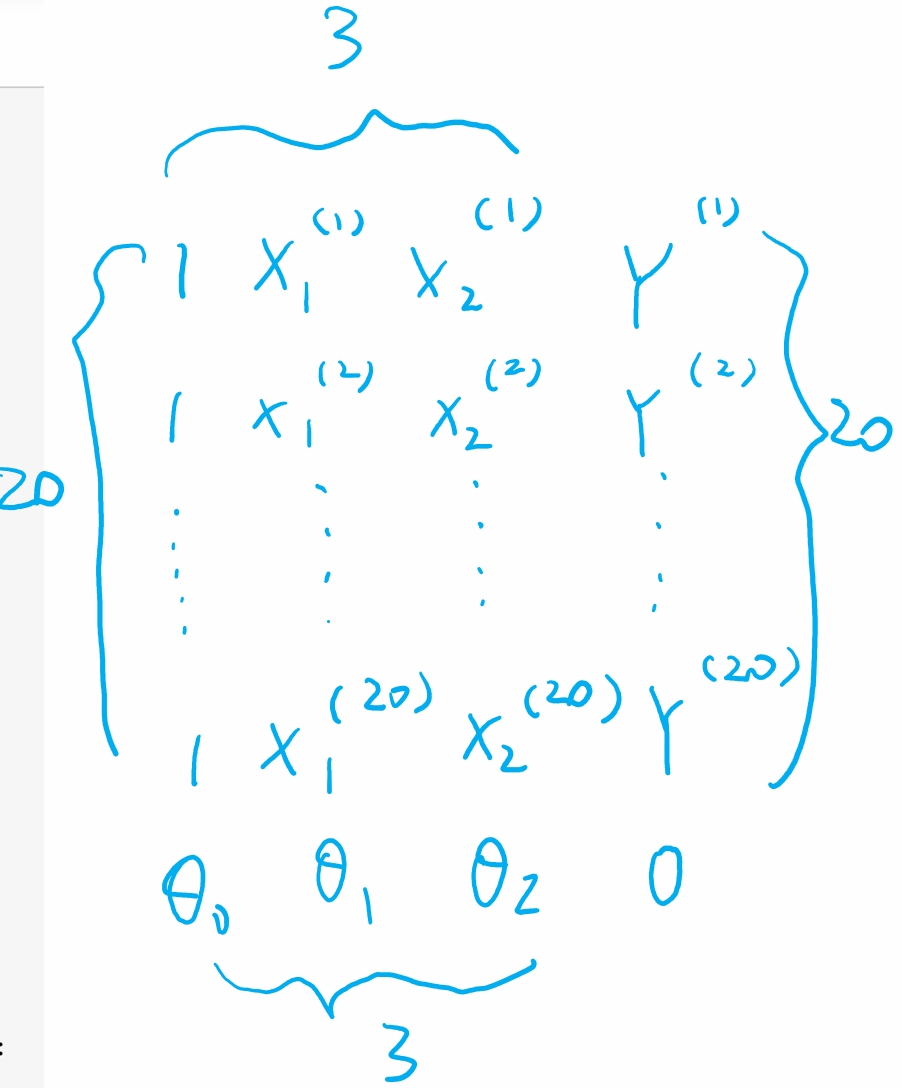 3
1 X₁⁽¹⁾ X₂⁽¹⁾ Y⁽¹⁾
1 X₁⁽²⁾ X₂⁽²⁾ Y⁽²⁾
20 20
1 X₁⁽²⁰⁾ X₂⁽²⁰⁾ Y⁽²⁰⁾
θ₀ θ₁ θ₂ 0
3
: